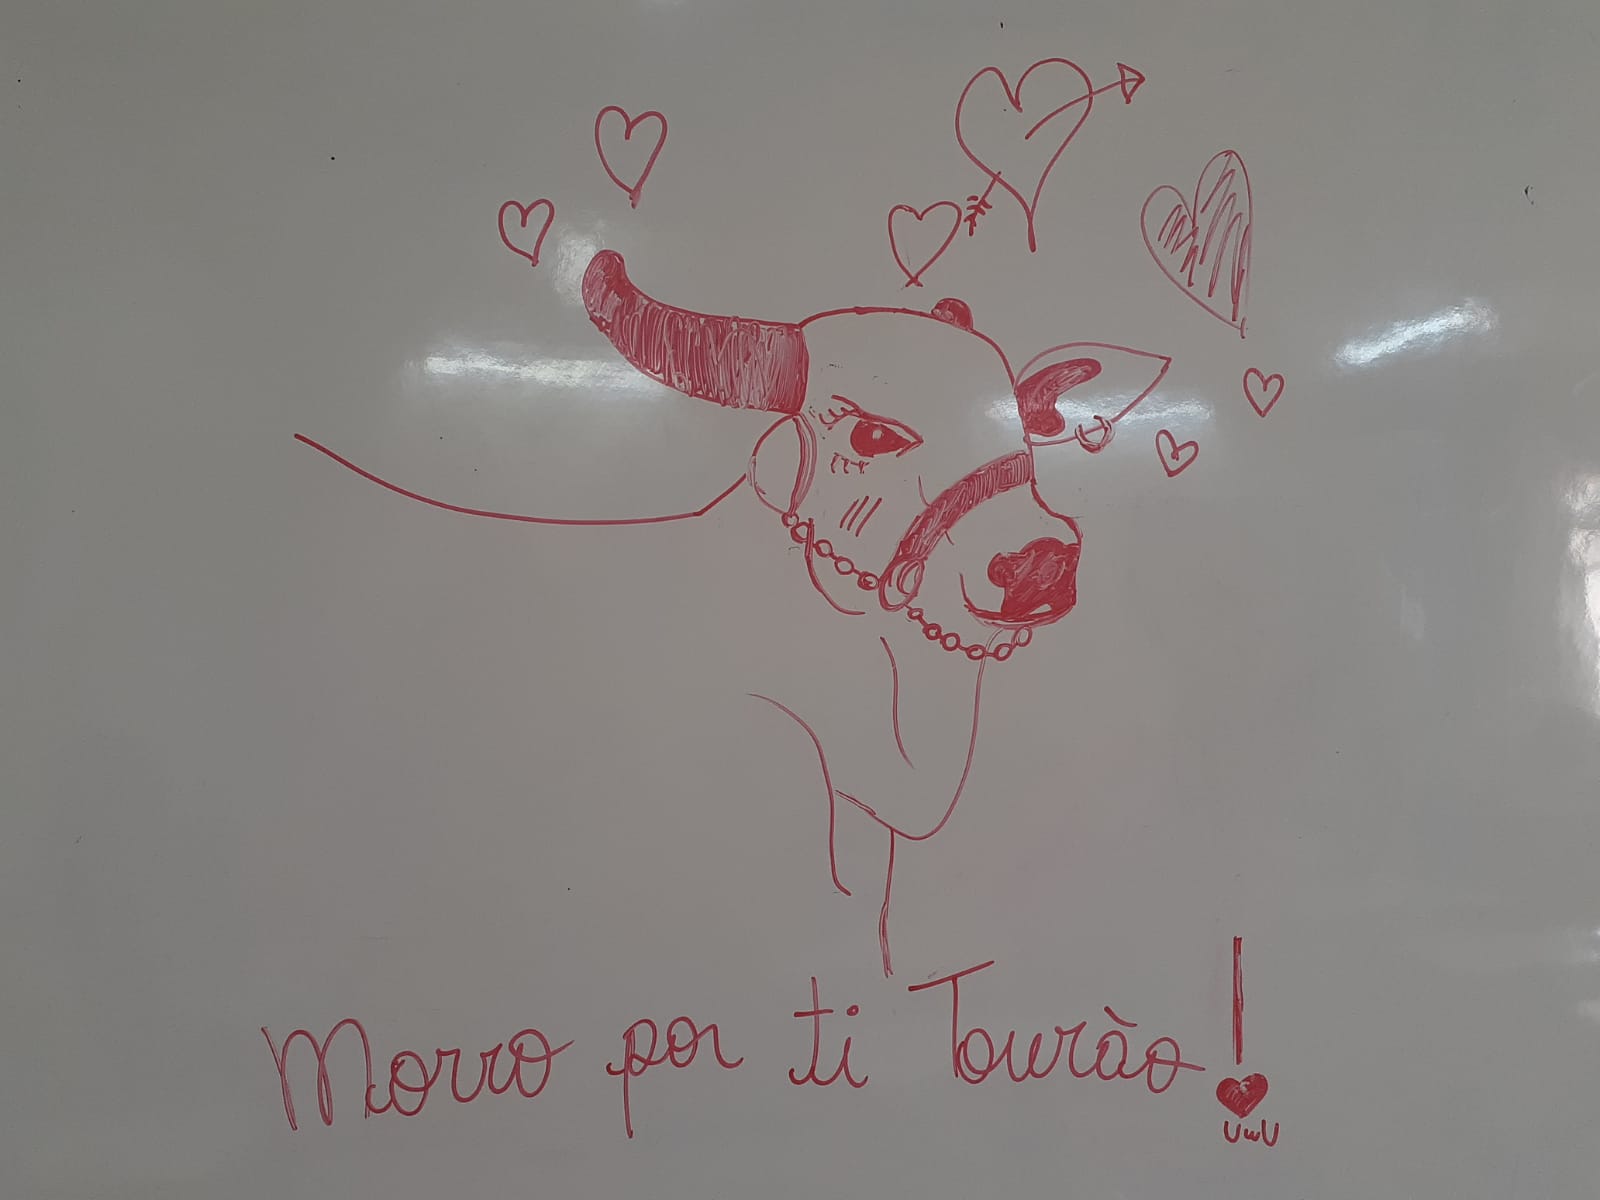 Morro por ti Tourão!
UwU